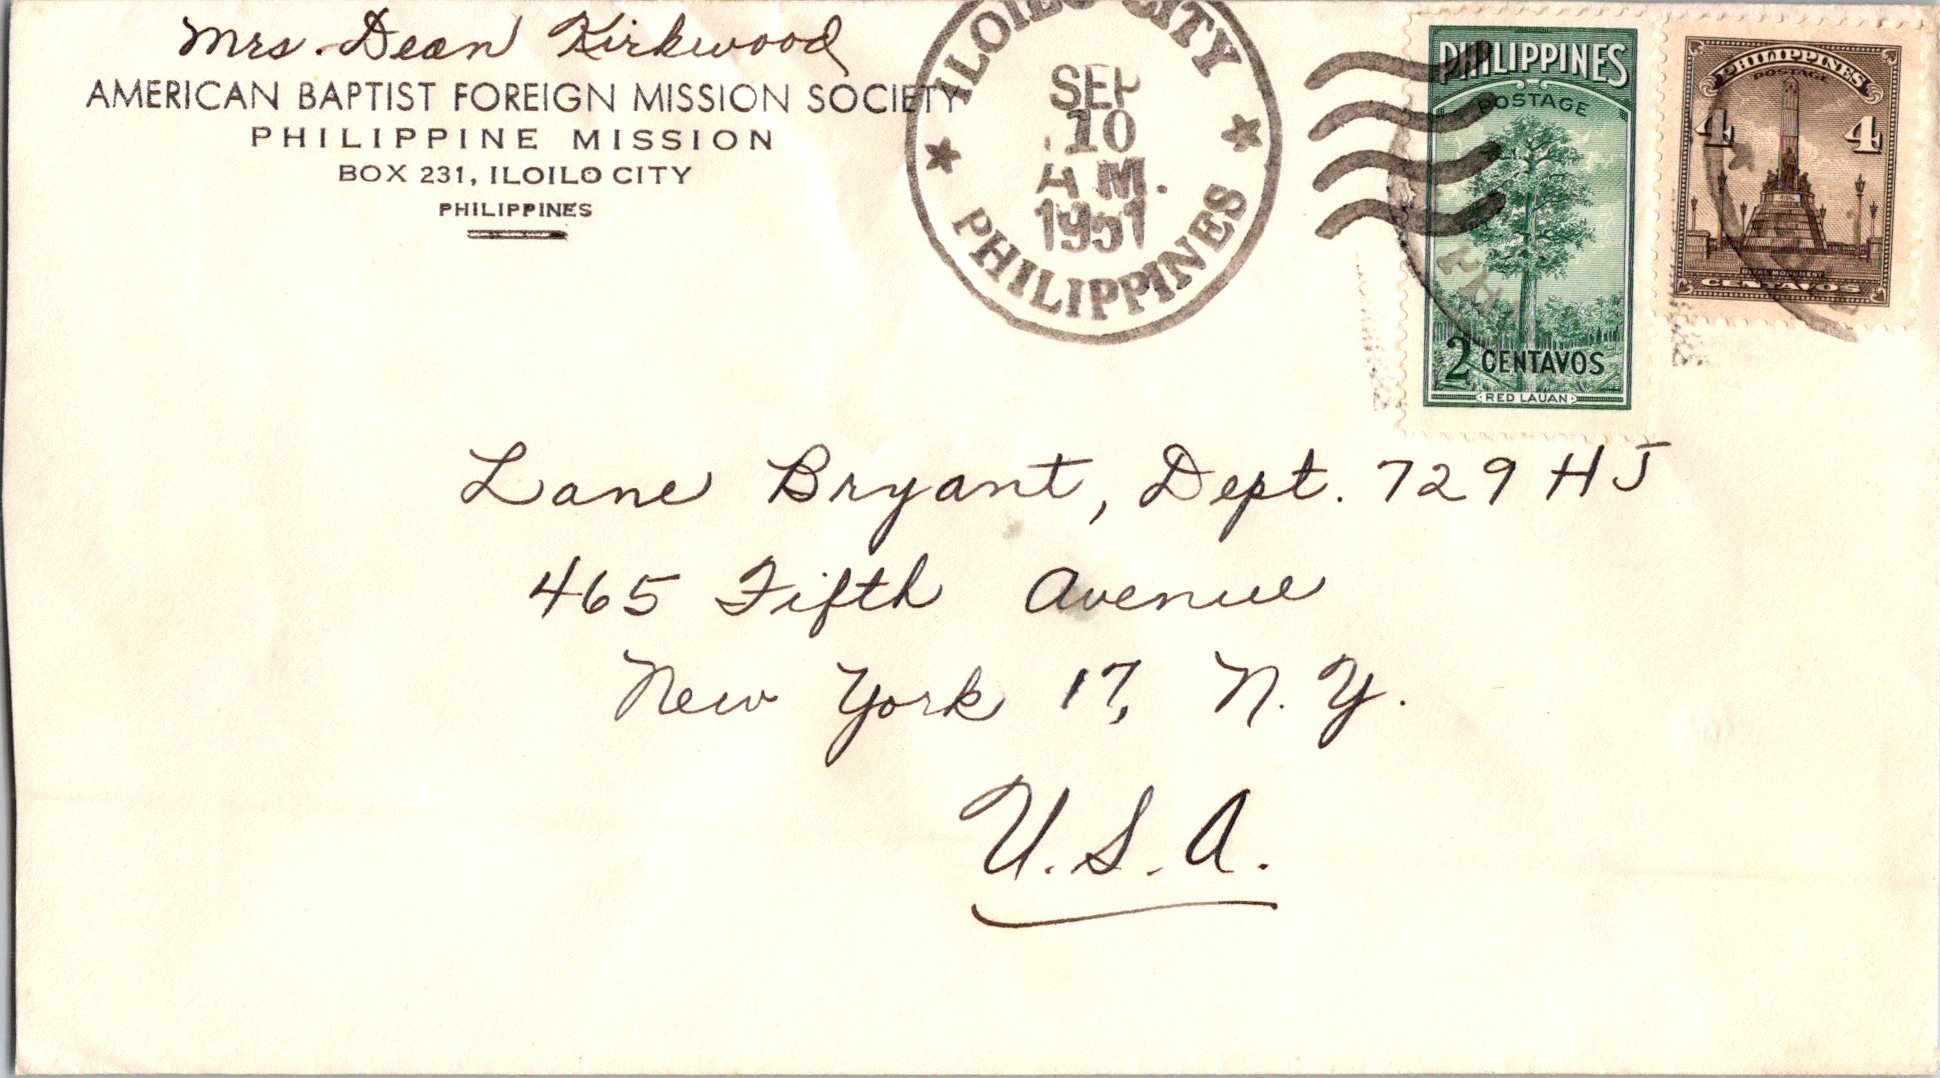 Mrs. Dean Kirkwood
AMERICAN BAPTIST FOREIGN MISSION SOCIETY
PHILIPPINE MISSION
BOX 231, ILOILO CITY
PHILIPPINES
ILOILO CITY
SEP
10
A M.
1951
PHILIPPINES
PHILIPPINES
POSTAGE
2 CENTAVOS
RED LAUAN
PHILIPPINES
POSTAGE
4 4
RIZAL MONUMENT
CENTAVOS
Lane Bryant, Dept. 729 HJ
465 Fifth Avenue
New York 17, N. Y.
U.S.A.